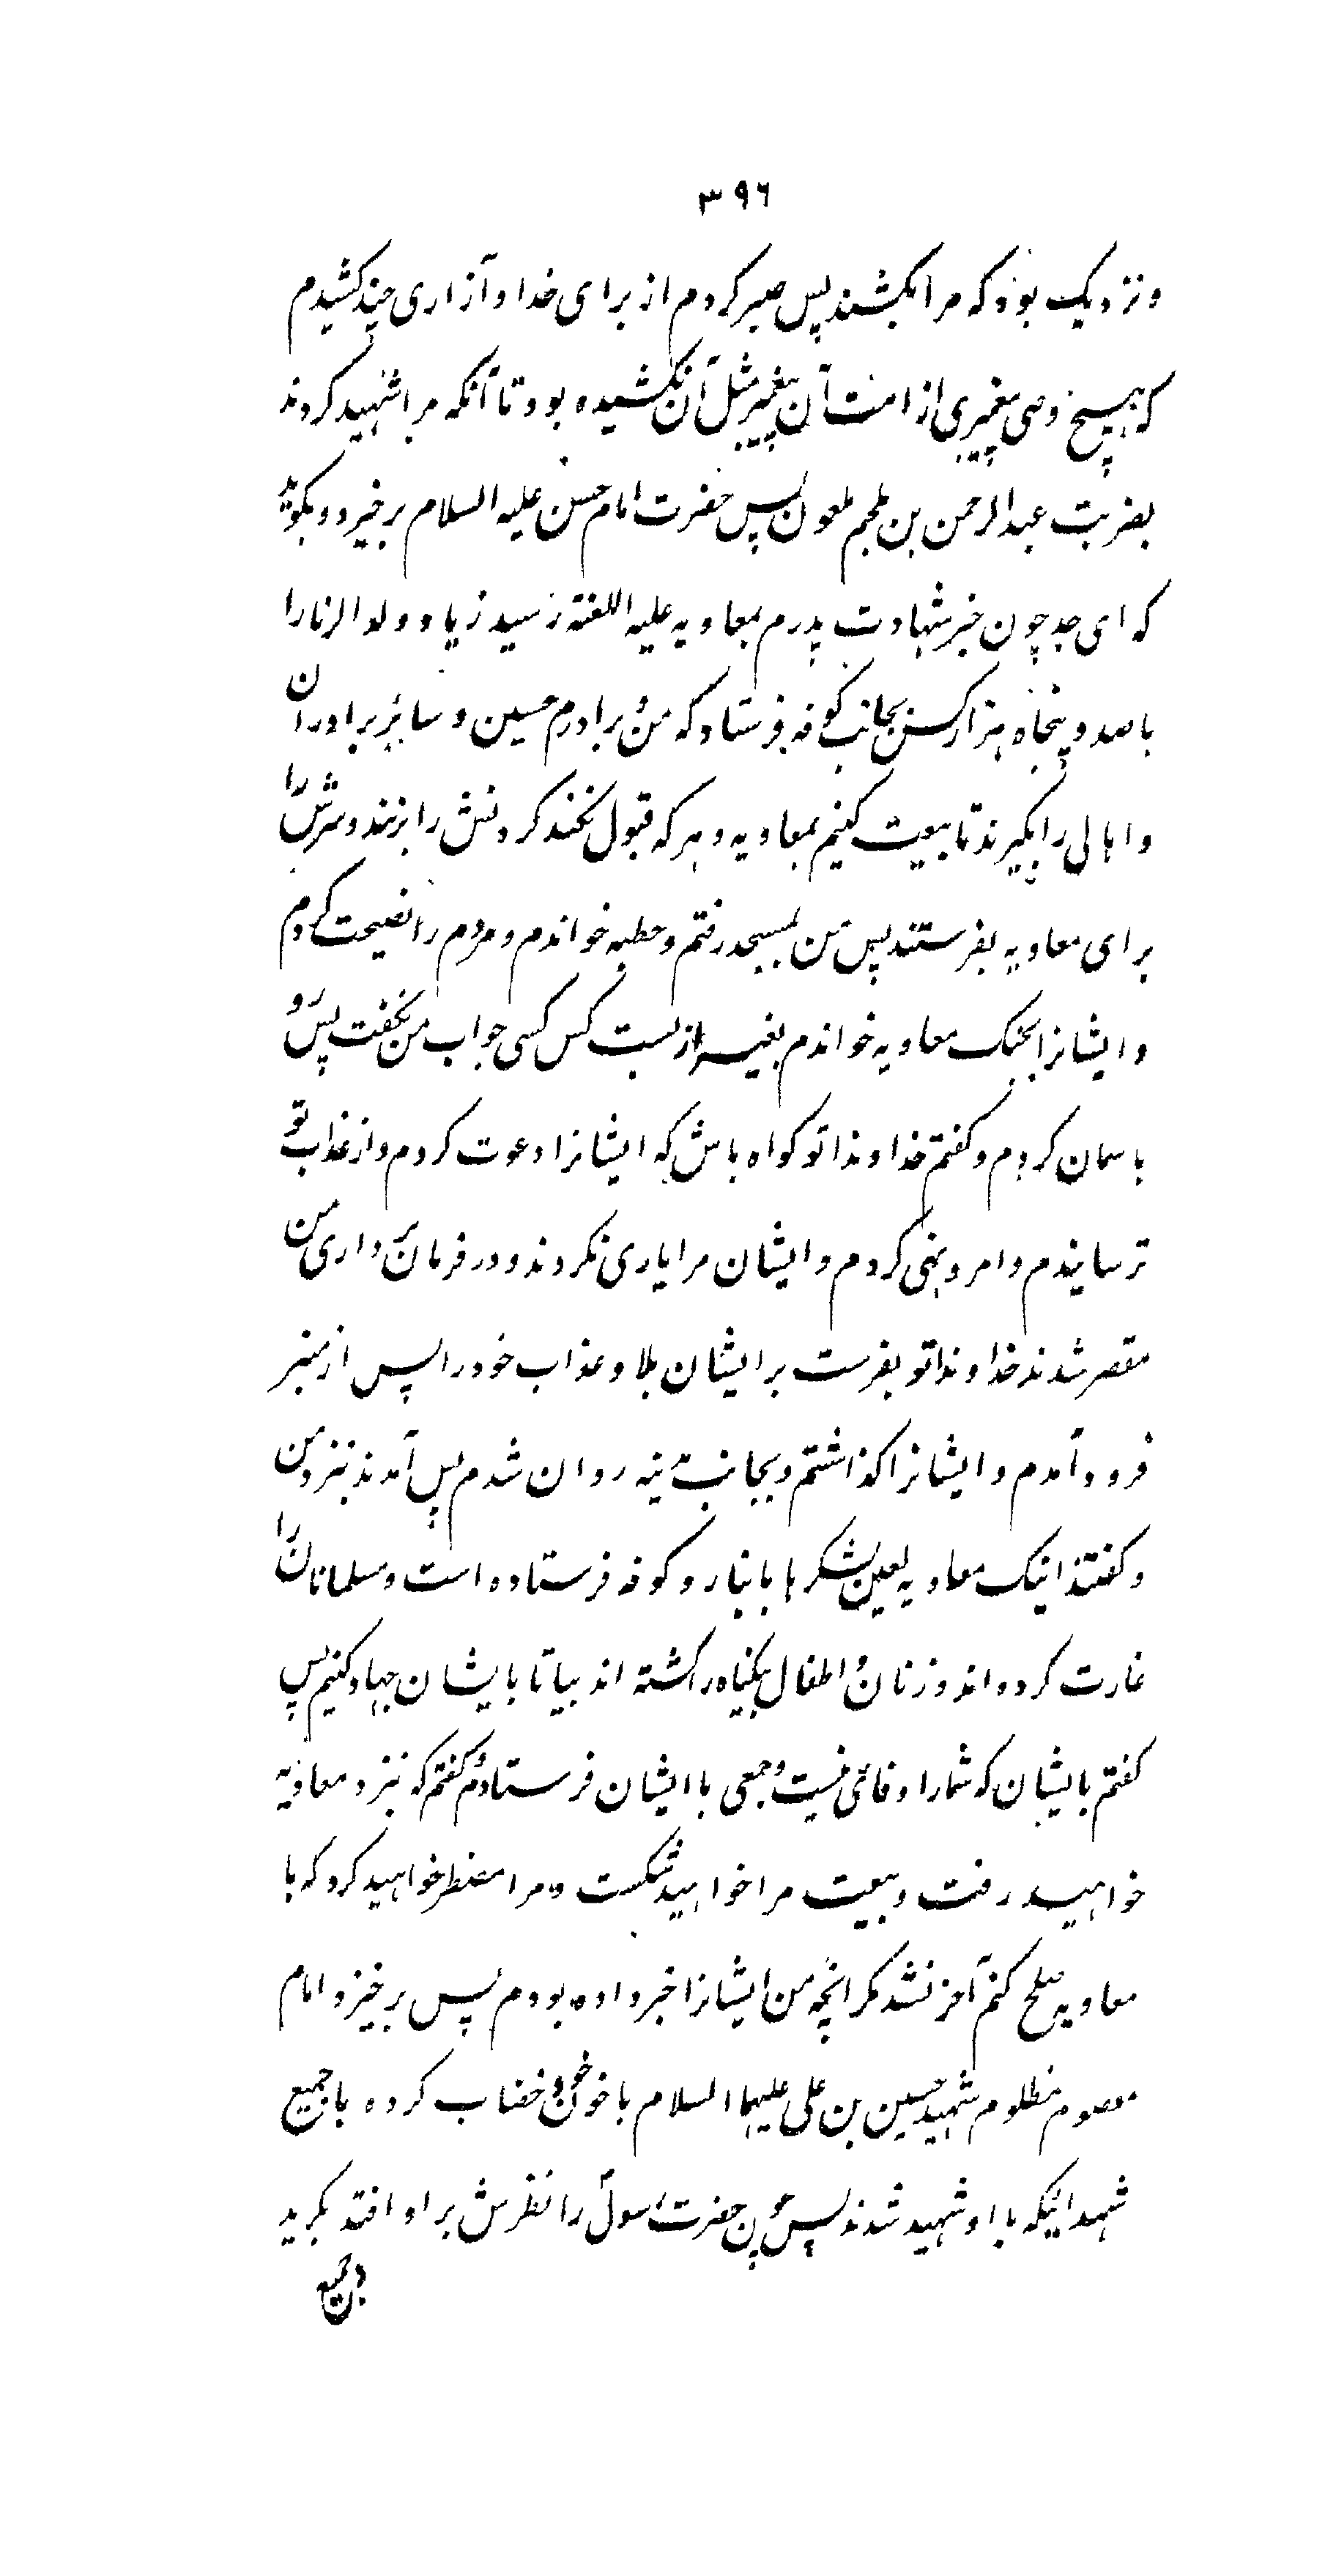 ۳۹۶
و نزدیک بود که مرا بکشند پس صبر کردم از برای خدا و آزاری چند کشیدم
که هیچ وصی پیغمبری از امت آن پیغمبر مثل آن نکشیده بود تا آنکه مرا شهید کردند
بضربت عبدالرحمن بن ملجم ملعون پس حضرت امام حسن علیه السلام برخیزد و بگوید
که ای جد چون خبر شهادت پدرم بمعاویه علیه اللعنة رسید زیاد ولد الزنا را
با صد و پنجاه هزار کس بجانب کوفه فرستاد که من و برادرم حسین و سایر برادران
و اهالی را بگیرند تا بیعت کنیم بمعاویه و هر که قبول نکند کردنش را بزنند و سرش را
برای معاویه بفرستند پس من بمسجد رفتم و خطبه خواندم و مردم را نصیحت کردم
و ایشانرا بجنک معاویه خواندم بغیر از بیست کس کسی جواب من نکفت پس رو
باسمان کردم و کفتم خداوندا تو کواه باش که ایشانرا دعوت کردم و از عذاب تو
ترسانیدم و امر و نهی کردم و ایشان مرا یاری نکردند و در فرمان برداری من
مقصر شدند خداوندا تو بفرست بر ایشان بلا و عذاب خود را پس از منبر
فرود آمدم و ایشانرا کذاشتم و بجانب مدینه روان شدم پس آمدند بنزد من
و کفتند اینک معاویه لعین لشکرها بانبار و کوفه فرستاده است و مسلمانان را
غارت کرده اند و زنان و اطفال بیکناه را کشته اند بیا تا بایشان جهاد کنیم پس
کفتم بایشان که شما را وفائی نیست و جمعی با ایشان فرستادم و کفتم که بنزد معاویه
خواهید رفت و بیعت مرا خواهید شکست و مرا مضطر خواهید کرد که با
معاویه صلح کنم آخر نشد مکر انچه من ایشانرا خبر داده بودم پس برخیزد امام
معصوم مظلوم شهید حسین بن علی علیهما السلام با خون خود خضاب کرده با جمیع
شهدائیکه با او شهید شدند پس چون حضرت رسول را نظرش بر او افتد بکرید